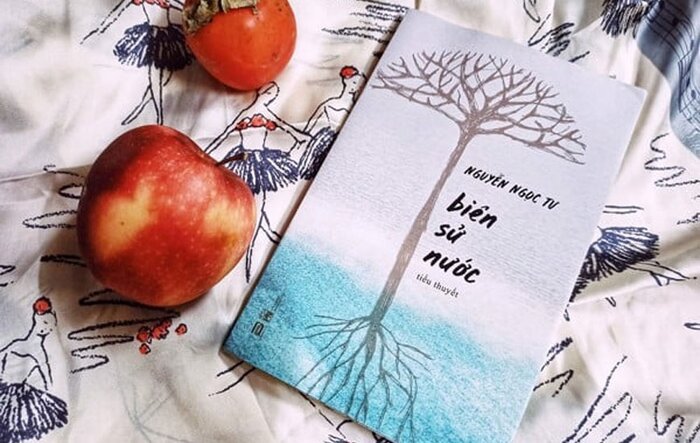 NGUYỄN NGỌC TƯ
biên
sử
nước
tiểu thuyết